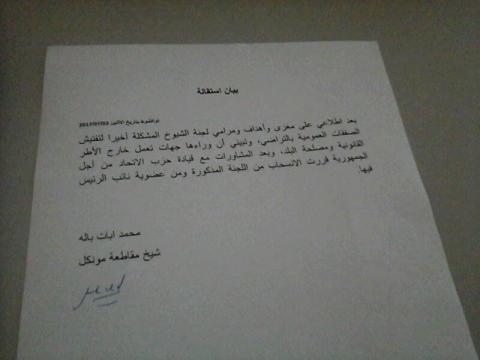 بيان استقالة
نواكشوط بتاريخ الاثنين
بعد اطلاعي على مغزى وأهداف ومرامي لجنة الشيوخ المشكلة أخيرا لتفتيش
الصفقات العمومية بالتراضي، وتبيني أن وراءها جهات تعمل خارج الأطر
القانونية ومصلحة البلد، وبعد المشاورات مع قيادة حزب الاتحاد من أجل
الجمهورية قررت الانسحاب من اللجنة المذكورة ومن عضوية نائب الرئيس
فيها.
محمد ابات باله
شيخ مقاطعة مونكل